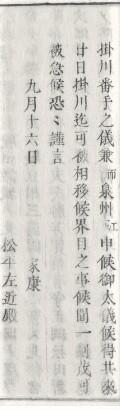 掛川番手之儀兼而泉州江申候御太儀候得共來
廿日掛川迄可被相移候界目之事候間一刻茂可
被急候恐々謹言
九月十六日
家康
松平左近殿